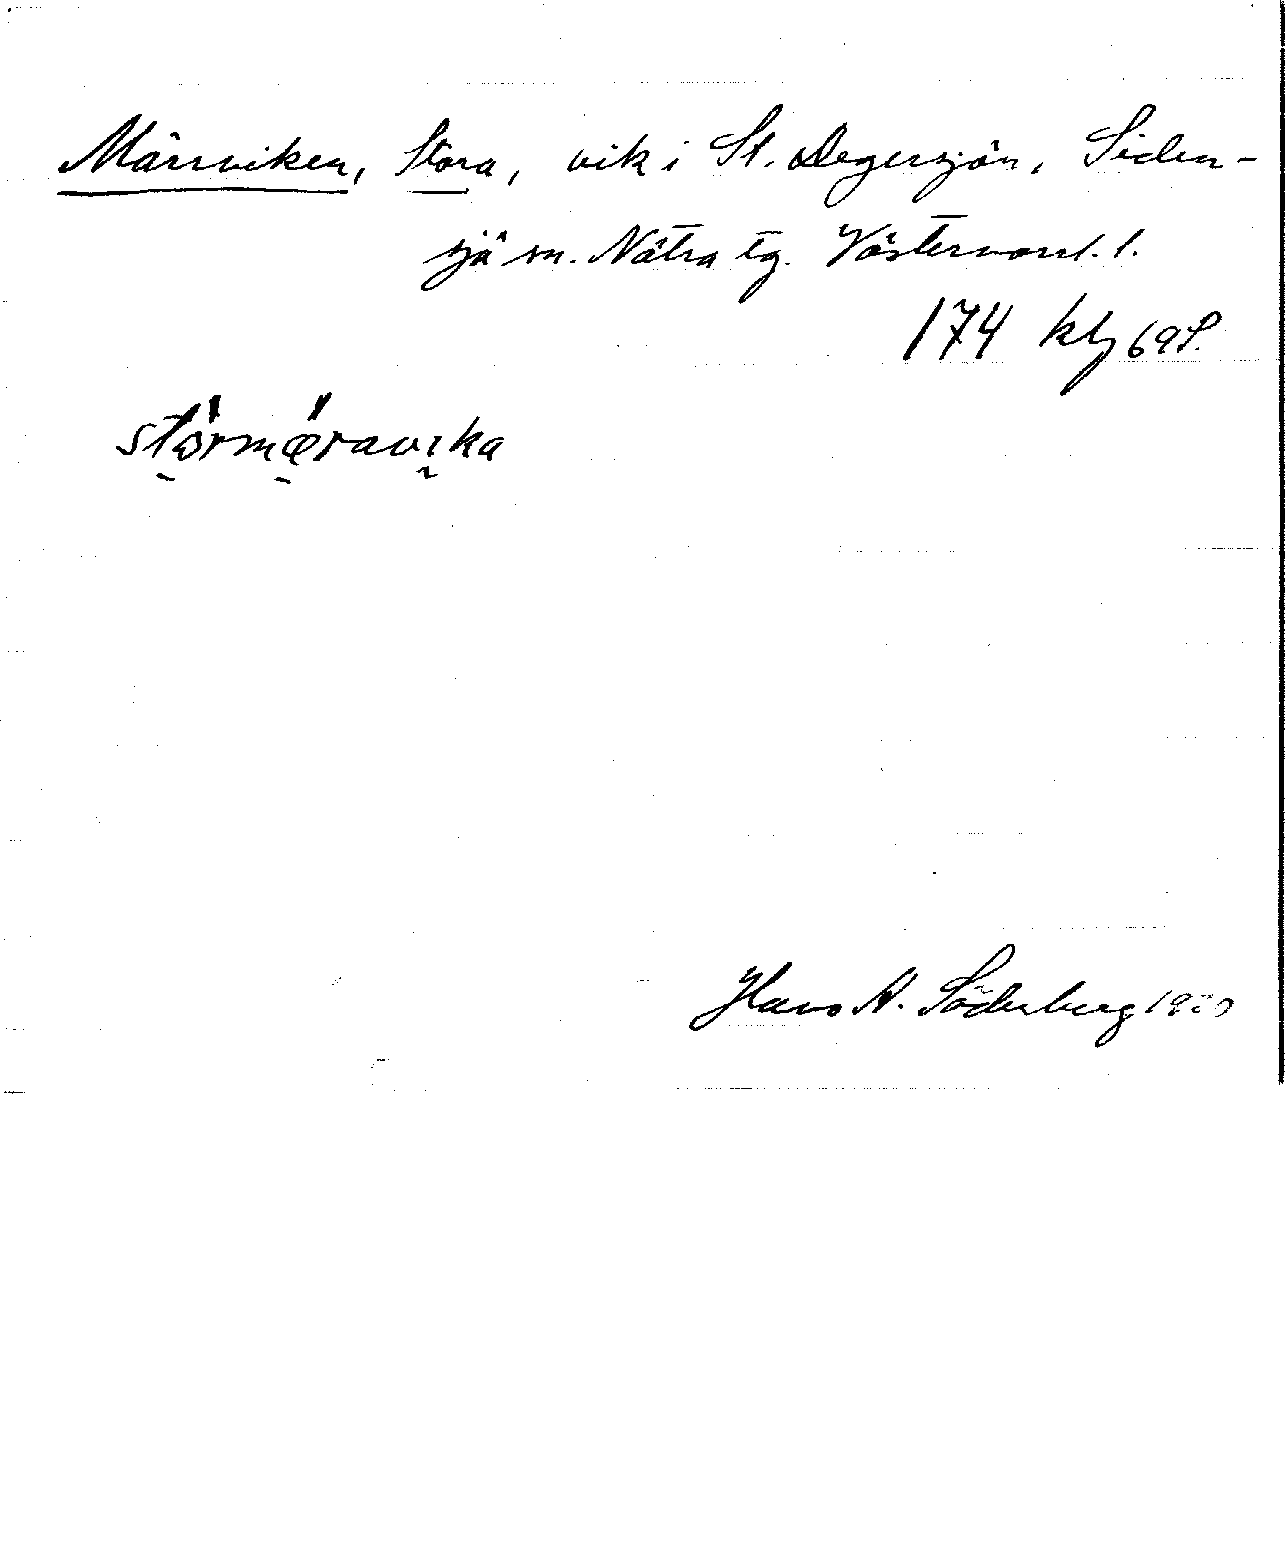 Märrviken, Stora, vik i St. Degersjön, Siden-
sjö sn. Nätra tg. Västernorrl. l.
174 69S.
störmæravıka
Hans A. Söderberg 1920